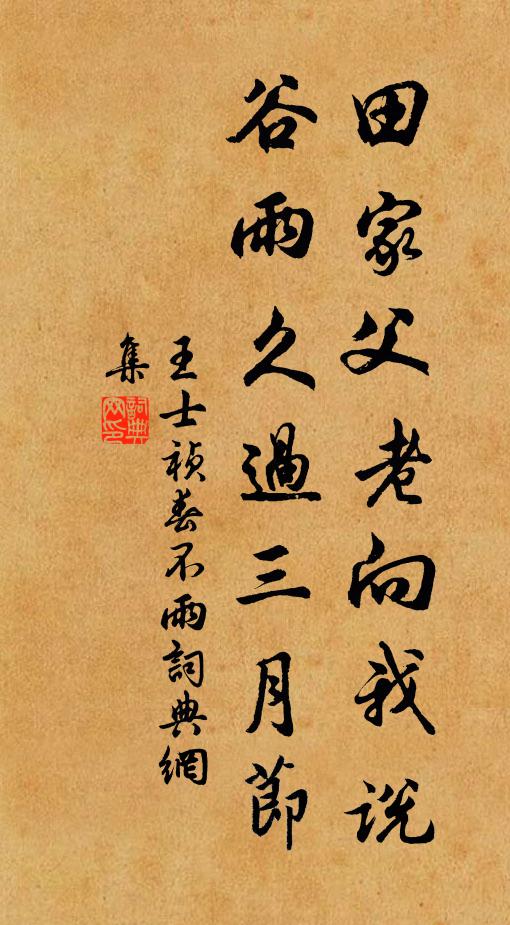 田家父老向我説
谷雨久過三月節
王士禎春不雨詞典網
集
詞典
网印